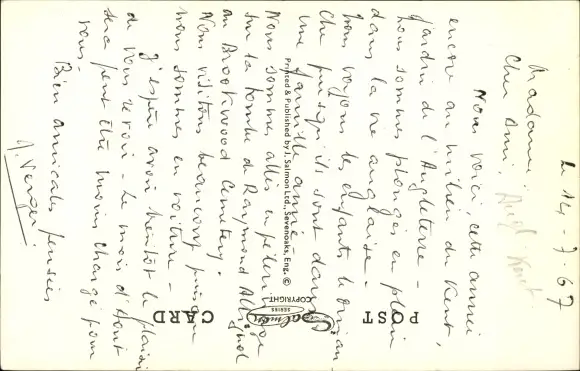 Le 14-7-67
Madame,
Cher Ami,
Nous voici, cette année
encore au milieu du Kent,
Jardin de l'Angleterre -
Nous sommes plongés en plein
dans la vie anglaise.
Nous voyons les enfants
che puisqu'ils sont dans
une famille amie -
Nous sommes allés en pélerinage
sur la tombe de Raymond
au Brookwood Cemetery.
Nous visitons beaucoup puisque
nous sommes en voiture -
J'espère avoir bientôt le plaisir
de vous revoir - Le mois d'août
sera peut être moins chargé pour
vous -
Bien amicales pensées
Angl. Kent
POST CARD
Salmon
SERIES
COPYRIGHT
Printed & Published by J. Salmon Ltd., Sevenoaks, Eng. ©